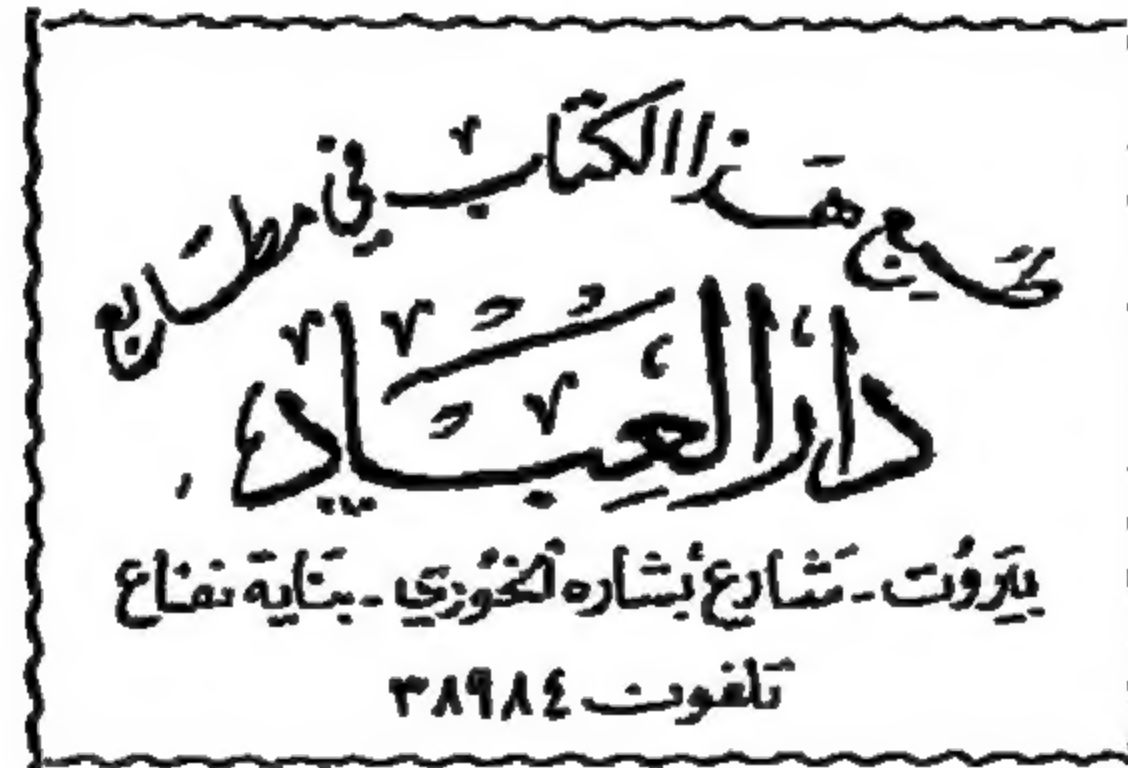 طبع هذا الكتاب في مطابع
دار العباد
بيروت - شارع بشاره الخوري - بناية نفاع
تلفون ٣٨٩٨٤